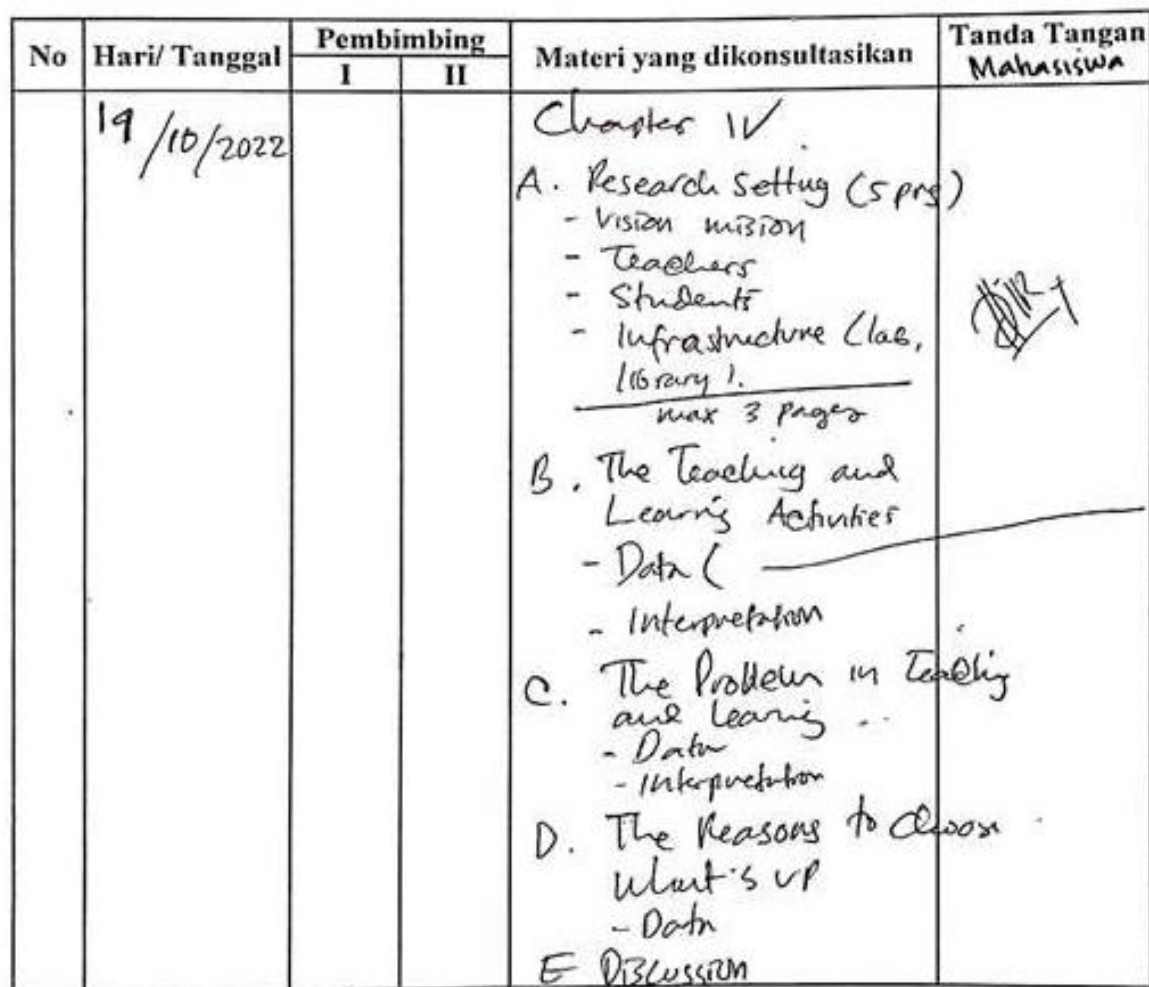 No Hari/ Tanggal Pembimbing Materi yang dikonsultasikan Tanda Tangan
I II Mahasiswa
19/10/2022
Chapter IV
A. Research Setting (5 prg)
- Vision mission
- Teachers
- Students
- Infrastructure (lab,
library).
max 3 pages
B. The Teaching and
Learning Activities
- Data (
- Interpretation
C. The Problem in Teaching
and Learning ..
- Data
- Interpretation
D. The Reasons to choose
What's up
- Data
E Discussion